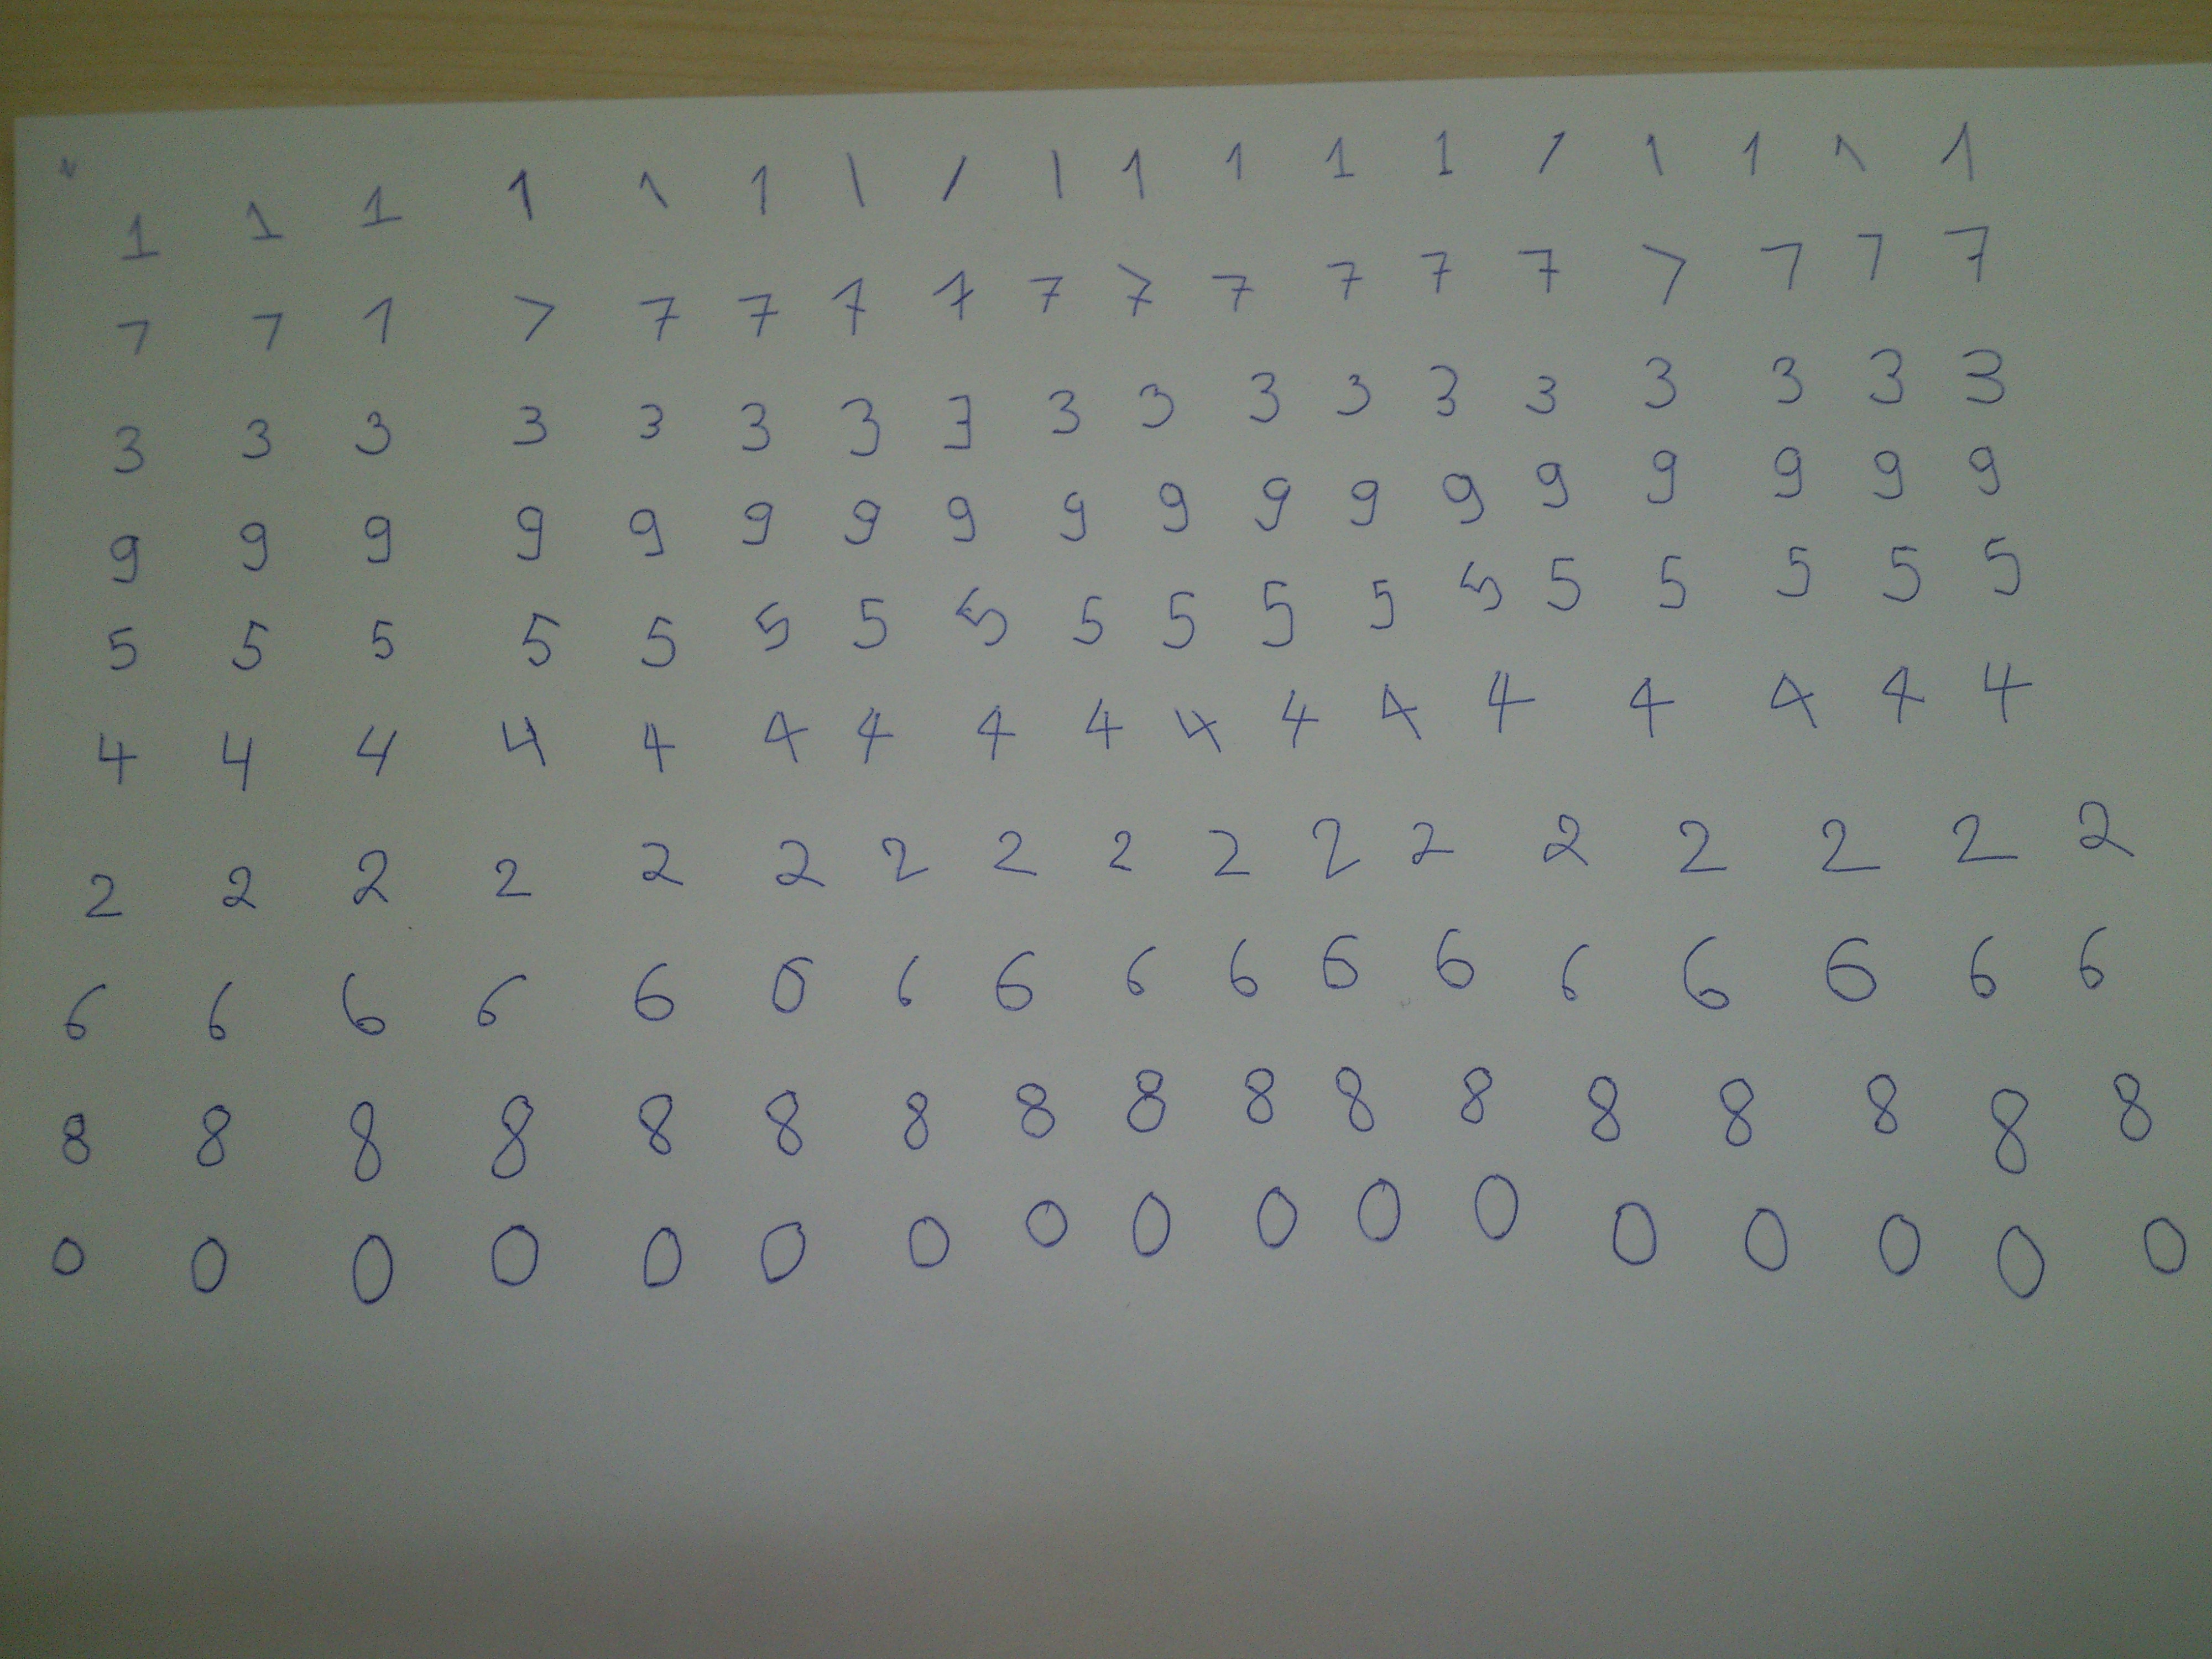 1 1 1 1 1 1 1 1 1 1 1 1 1 1 1 1 1 1
7 7 7 7 7 7 7 7 7 7 7 7 7 7 7 7 7 7
3 3 3 3 3 3 3 3 3 3 3 3 3 3 3 3 3 3
9 9 9 9 9 9 9 9 9 9 9 9 9 9 9 9 9 9
5 5 5 5 5 5 5 5 5 5 5 5 5 5 5 5 5 5
4 4 4 4 4 4 4 4 4 4 4 4 4 4 4 4 4
2 2 2 2 2 2 2 2 2 2 2 2 2 2 2 2 2
6 6 6 6 6 6 6 6 6 6 6 6 6 6 6 6 6
8 8 8 8 8 8 8 8 8 8 8 8 8 8 8 8 8
0 0 0 0 0 0 0 0 0 0 0 0 0 0 0 0 0